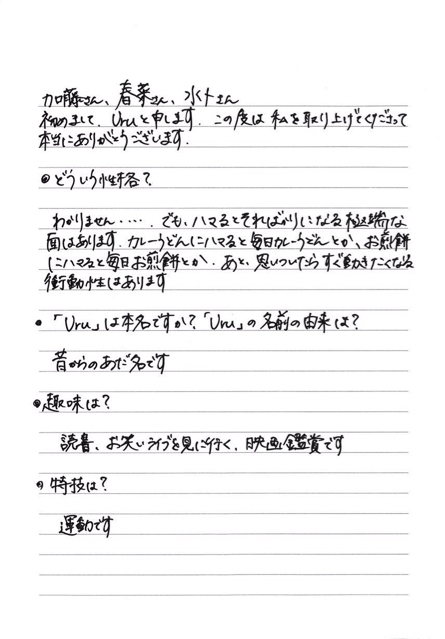 加藤さん、春菜さん、水卜さん
初めまして、Uruと申します. この度は 私を取り上げてくださって
本当にありがとうございます.
●どういう性格?
わかりません・・・・. でも、ハマるとそればかりになる極端な
面はあります. カレーうどんにハマると毎日カレーうどんとか、お煎餅
にハマると毎日お煎餅とか. あと、思いついたらすぐ動きたくなる
衝動性はあります
●「Uru」は本名ですか?「Uru」の名前の由来は?
昔からのあだ名です
●趣味は?
読書、お笑いライブを見に行く、映画鑑賞です
●特技は?
運動です